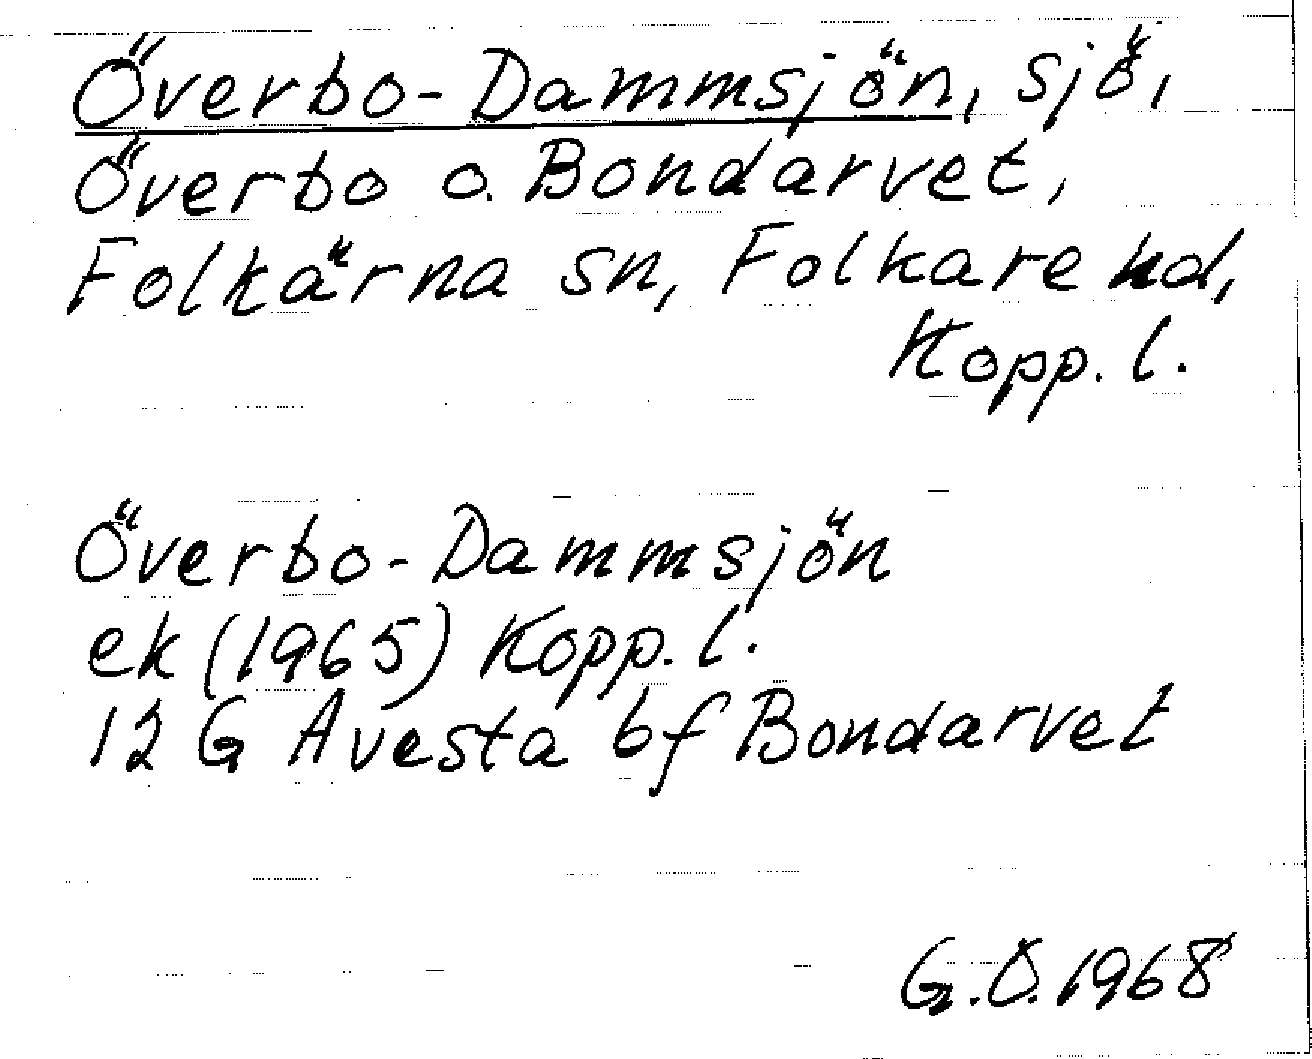 Överbo-Dammsjön, sjö,
Överbo o. Bondarvet,
Folkärna sn, Folkare hd,
Kopp. l.
Överbo-Dammsjön
ek (1965) Kopp. l.
12 G Avesta bf Bondarvet
G.Ö. 1968